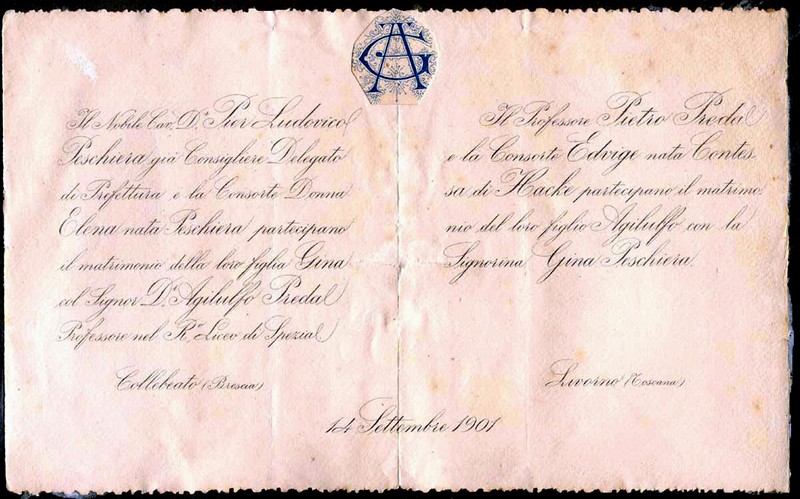 AG
Il Nobile Cav. Dr. Pier Ludovico
Peschiera già Consigliere Delegato
di Prefettura e la Consorte Donna
Elena nata Peschiera partecipano
il matrimonio della loro figlia Gina
col Signor Dr. Agilulfo Preda
Professore nel R.° Liceo di Spezia
Collebeato (Brescia)
Il Professore Pietro Preda
e la Consorte Edvige nata Contes-
sa di Hacke partecipano il matrimo-
nio del loro figlio Agilulfo con la
Signorina Gina Peschiera.
Livorno (Toscana)
14 Settembre 1901